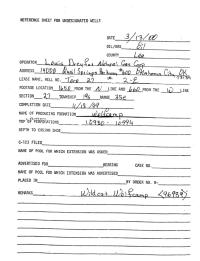 REFERENCE SHEET FOR UNDESIGNATED WELLS
DATE 3/13/00
OIL/GAS
COUNTY Lea
OPERATOR Louis Dreyfus Natural Gas Corp
ADDRESS 14000 Quail Springs Parkway #600 Oklahoma City, OK
LEASE NAME, WELL NO. 27 # 2
FOOTAGE LOCATION 1650 FROM THE N LINE AND 660 FROM THE W LINE
SECTION 27 TOWNSHIP 19S RANGE 35E
COMPLETION DATE 11/18/99
NAME OF PRODUCING FORMATION Wolfcamp
TOP OF PERFORATIONS 10930 - 10994
DEPTH TO CASING SHOE
C-123 FILED
NAME OF POOL FOR WHICH EXTENSION WAS ASKED
ADVERTISED FOR HEARING CASE NO.
NAME OF POOL FOR WHICH EXTENSION WAS ADVERTISED
PLACED IN BY ORDER NO. R-
REMARKS Wildcat Wolfcamp